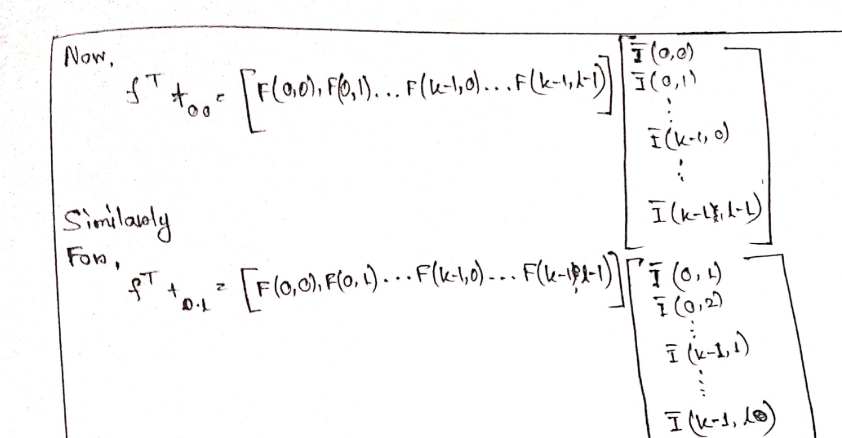 Now,
f^T t_00 = [F(0,0), F(0,1)... F(k-1,0)... F(k-1,l-1)] [Ī(0,0)
Ī(0,1)
⋮
Ī(k-1,0)
⋮
Ī(k-1,l-1)]
Similarly
For,
f^T t_0.1 = [F(0,0), F(0,1)... F(k-1,0)... F(k-1,l-1)] [Ī(0,1)
Ī(0,2)
⋮
Ī(k-1,1)
⋮
Ī(k-1,l)